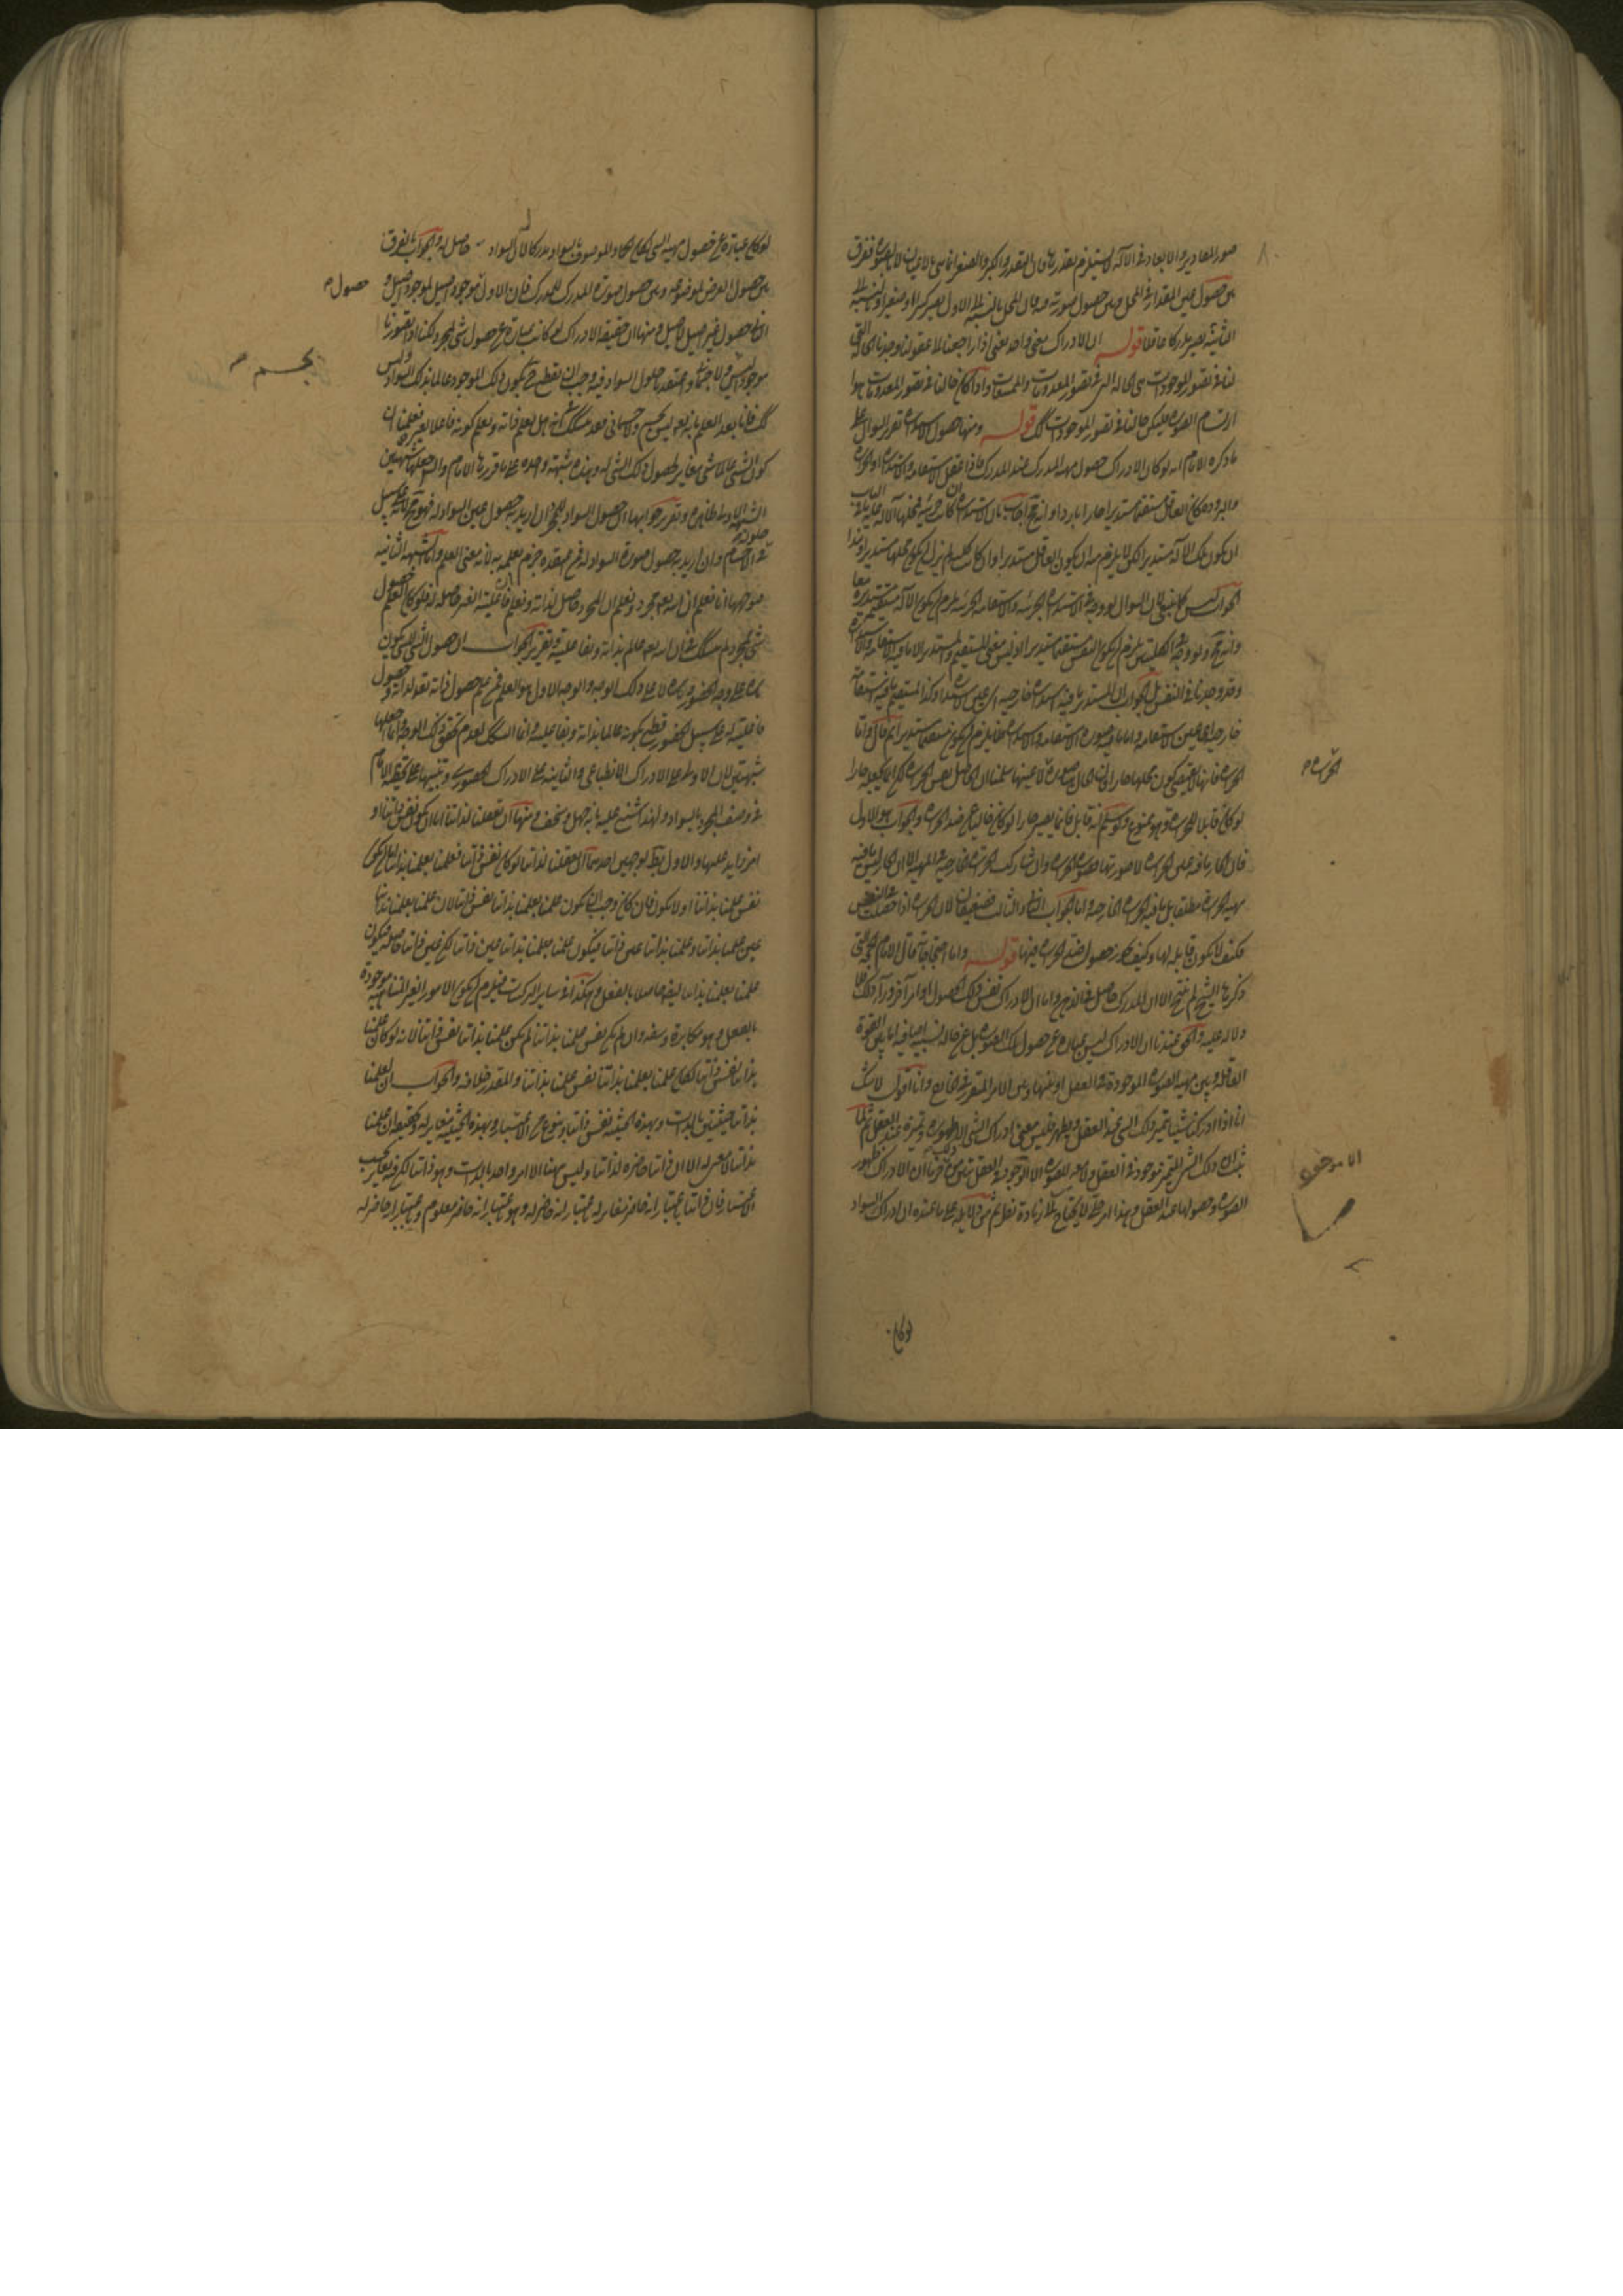 صور المقادير والابعاد في الآلة لا يستلزم تقدرها فان التقدر والكبر والصغر انما هي بالاعيان لا بالصورة ففرق
بين حصول عين المقدار في المحل وبين حصول صورته فيه فان المحل بالنسبة الى الاول يصير كبيرا او صغيرا وبالنسبة الى
الثانية يصير مدركا عاقلا قوله ان الادراك معنى واحد يعني اذا راجعنا الى عقولنا وجدنا الحالة التي
لنا في تصور الموجودات هي الحالة التي في تصور المعدومات والممتنعات واذا كان حالنا في تصور المعدومات هو
ارتسام الصورة فليكن حالنا في تصور الموجودات كذلك قوله ومنها حصول الاستدارة تقرير السؤال على
ما ذكره الامام انه لو كان الادراك حصول مهية المدرك عند المدرك فاذا عقل الاستقامة والاستدارة او الحرارة
والبرودة كان العاقل مستقيما مستديرا حارا باردا وانه مح اجاب بان الاستدارة ان كانت جزئية فمحلها الآلة
ان يكون تلك الآلة مستديرا لكن لا يلزم منه ان يكون العاقل مستديرا وان كانت كلية لم يلزم ان يكون محلها مستديرا وهذا
الجواب ليس كما ينبغي لان السؤال لو ورد في الاستدارة الجزئية والاستقامة الجزئية يلزم ان يكون الآلة مستقيمة مستديرة معا
وانه مح ولو ورد في الكليتين يلزم ان يكون النفس مستقيما مستديرا اذ ليس معنى المستقيم والمستدير الا ما فيه الاستقامة والاستدارة
وقد وجدنا في النفس بل الجواب ان المستدير ما فيه استدارة خارجية اي عين الاستدارة وكذا المستقيم ما فيه استقامة
خارجية اي عين الاستقامة واما ما فيه صورة الاستقامة والاستدارة فلا يلزم ان يكون مستقيما مستديرا ثم قال واما
الحرارة فانها لا تقتضي كون محلها حارا لان الحال صورة لا عينها سلمنا ان الحاصل نفس الحرارة لكن انما يجعله حارا
لو كان قابلا للحرارة وهو ممنوع ولو سلم انه قابل فانما يصير حارا لو كان خاليا عن ضد الحرارة والجواب هو الاول
فان الحار ما فيه عين الحرارة لا صورتها فصورة الحرارة وان شاركت الحرارة الخارجية في المهية الا ان الحار ليس ما فيه
مهية الحرارة مطلقا بل ما فيه الحرارة الخارجية واما الجواب الثاني والثالث فضعيفان لان الحرارة اذا حصلت في النفس
فكيف لا يكون قابلة لها وكيف يجوز حصول ضد الحرارة فيها قوله واما احتجاجاته قال الامام الحجة التي
ذكرها الشيخ لم ينتج الا ان المدرك حاصل في الذهن واما ان الادراك نفس ذلك الحصول او امر آخر وراء ذلك فلا
دلالة عليه والحق عندنا ان الادراك ليس عبارة عن حصول تلك الصورة بل عن حالة نسبية اضافية اما بين القوة
العاقلة وبين مهية الصورة الموجودة في العقل او بينها وبين الامر المتقرر في الخارج وانا اقول لا شك
انا اذا ادركنا شيئا يتميز ذلك الشيء عند العقل ويظهر فليس معنى ادراك الشيء الا ظهوره وتميزه عند العقل ثم لما
ثبت ان ذلك الشيء المتميز موجود في العقل ولا معنى للصورة الا الموجود في العقل تبين من ذلك ان الادراك ظهور
الصورة وحصولها عند العقل وهذا امر جلي لا يحتاج الى زيادة نظر ثم من دلائله على ما عنده ان ادراك السواد
الحرارة م
لو كان
لو كان عبارة عن حصول مهية الشيء لكان الجماد الموصوف بالسواد مدركا لان السواد حاصل له والجواب بالفرق
بين حصول العرض لموضوعه وبين حصول صورة المدرك للمدرك فان الاول حصول موجود اصيل لموجود اصيل و
الثاني حصول غير اصيل لاصيل ومنها ان حقيقة الادراك لو كانت عبارة عن حصول شيء لمجرد لكنا اذا تصورنا
موجودا ليس بجسم ولا جسماني واعتقدنا حلول السواد فيه وجب ان نقطع ح بكون ذلك الموجود عالما بذلك السواد وليس
كذلك فانا بعد العلم بانه تعالى ليس بجسم ولا جسماني قد نشك انه هل يعلم ذاته ونعلم كونه فاعلا لغيره فعلمنا ان
كون الشيء عالما بشيء مغاير لحصول ذلك الشيء له وهذه شبهة واحدة على ما قررها الامام والشارح جعلها شبهتين
الشبهة الاولى ظاهرة وتقرير جوابها ان حصول السواد للمجرد ان اريد به حصول عين السواد له فهو مح لانه يمتنع حلوله
في الاجسام وان اريد به حصول صورة السواد له فمن اعتقده جزم بعلمه به لانه معنى العلم واما الشبهة الثانية
فتوجيهها انا نعلم ان الله تعالى مجرد ونعلم ان المجرد حاصل لذاته ونعلم ان فاعلية الغير حاصلة له فلو كان العلم حصول
شيء لمجرد لم نشك في ان الله تعالى عالم بذاته وبفاعليته وتقرير الجواب ان حصول الشيء للشيء يكون
تارة على وجه الحضور وتارة لا على ذلك الوجه والوجه الاول هو العلم فمن علم حصول ذاته تعالى لذاته وحصول
فاعليته له على سبيل الحضور قطع بكونه عالما بذاته وبفاعليته وانما الشك لعدم تحقق ذلك الوجه وانما جعلها
شبهتين لان الاولى على الادراك الانطباعي والثانية على الادراك الحضوري وتنبيها على تخبط الامام
في وصف المجرد بالسواد ولهذا شنع عليه بانه جهل وسخف ومنها ان تعقلنا لذاتنا اما ان يكون نفس ذاتنا او
امرا زايدا عليها والاول بط بوجهين احدهما ان تعقلنا لذاتنا لو كان نفس ذاتنا فعلمنا بعلمنا بذاتنا اما ان يكون
نفس علمنا بذاتنا او لا يكون فان كان وجب ان يكون علمنا بعلمنا بذاتنا نفس ذاتنا لان علمنا بعلمنا بذاتنا
عين علمنا بذاتنا وعلمنا بذاتنا عين ذاتنا فيكون علمنا بعلمنا بذاتنا عين ذاتنا لكن عين ذاتنا حاصلة فيكون
علمنا بعلمنا بذاتنا ايضا حاصلا بالفعل وهكذا في سائر المركبات فيلزم ان يكون الامور الغير المتناهية موجودة
بالفعل وهو مكابرة وسفه وان لم يكن نفس علمنا بذاتنا لم يكن علمنا بذاتنا نفس ذاتنا لانه لو كان علمنا
بذاتنا نفس ذاتنا لكان علمنا بعلمنا بذاتنا نفس علمنا بذاتنا والمقدر خلافه والجواب ان لعلمنا
بذاتنا حيثيتين بالذات وبهذه الحيثية نفس ذاتنا وبنوع من الاعتبار وبهذه الحيثية مغاير له وتحقيقه ان علمنا
بذاتنا لا معنى له الا ان ذاتنا حاضرة لذاتنا وليس ههنا الا امر واحد بالذات وهو ذاتنا لكن فيه تغاير بحسب
الاعتبار فان ذاتنا باعتبار انه حاضر مغاير له باعتبار انه حاضر له وهو باعتبار انه حاضر معلوم وباعتبار انه حاضر له
حصول م
بجسم م